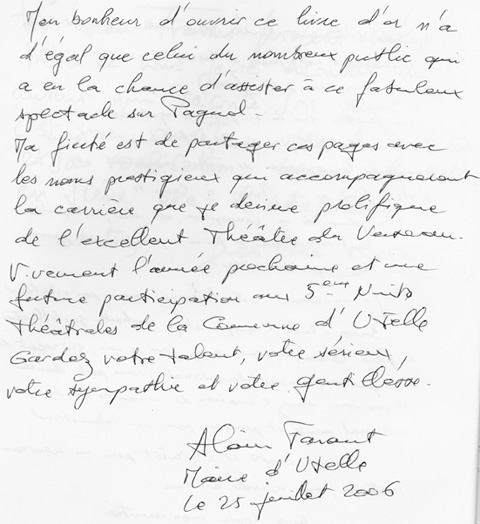 Mon bonheur d'ouvrir ce livre d'or n'a
d'égal que celui du nombreux public qui
a eu la chance d'assister à ce fabuleux
spectacle sur Pagnol -
Ma fierté est de partager ces pages avec
les noms prestigieux qui accompagneront
la carrière que je devine prolifique
de l'excellent Théâtre du Verseau.
Vivement l'année prochaine et une
future participation aux 5eme Nuits
théâtrales de la Commune d'Utelle
Gardez votre talent, votre sérieux,
votre sympathie et votre gentillesse.
Alain
Maire d'Utelle
Le 25 juillet 2006